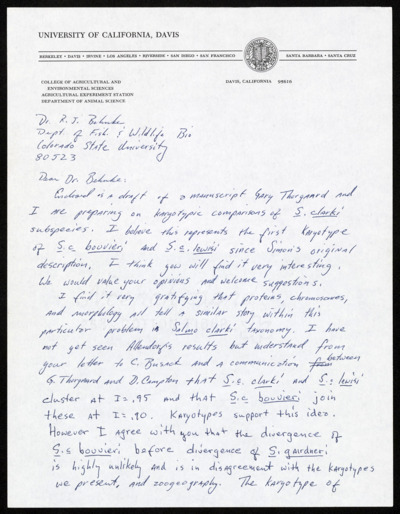 UNIVERSITY OF CALIFORNIA, DAVIS
BERKELEY • DAVIS • IRVINE • LOS ANGELES • RIVERSIDE • SAN DIEGO • SAN FRANCISCO
SANTA BARBARA • SANTA CRUZ
COLLEGE OF AGRICULTURAL AND
ENVIRONMENTAL SCIENCES
AGRICULTURAL EXPERIMENT STATION
DEPARTMENT OF ANIMAL SCIENCE
DAVIS, CALIFORNIA 95616
Dr. R. J. Behnke
Dept of Fish & Wildlife Bio
Colorado State University
80523
Dear Dr. Behnke:
Enclosed is a draft of a manuscript Gary Thorgaard and
I are preparing on karyotypic comparisons of S. clarki
subspecies. I believe this represents the first karyotype
of S.c. bouvieri and S.c. lewisi since Simon's original
description. I think you will find it very interesting.
We would value your opinions and welcome suggestions.
I find it very gratifying that proteins, chromosomes,
and morphology all tell a similar story within this
particular problem in Salmo clarki taxonomy. I have
not yet seen Allendorf's results but understand from
your letter to C. Busack and a communication between
G. Thorgaard and D. Campton that S.c. clarki and S.c. lewisi
cluster at I=.95 and that S.c. bouvieri join
these at I=.90. Karyotypes support this idea.
However I agree with you that the divergence of
S.c bouvieri before divergence of S. gairdneri
is highly unlikely and is in disagreement with the karyotypes
we present, and zoogeography. The karyotype of